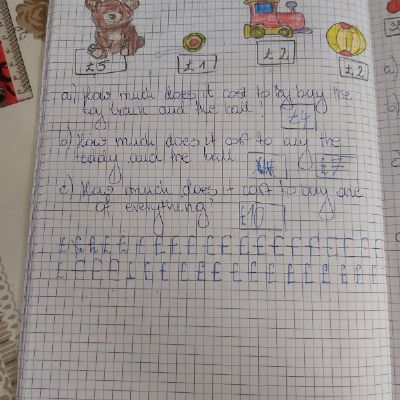 £5 £1 £2 £2
a) How much does it cost to buy the
toy train and the ball? £4
b) How much does it cost to buy the
teddy and the ball £7
c) How much does it cost to buy one
of everything? £10
£ £ £ £ £ £ £ £ £ £ £ £ £ £ £ £ £ £ £ £
£ £ £ £ £ £ £ £ £ £ £ £ £ £ £ £ £ £ £ £